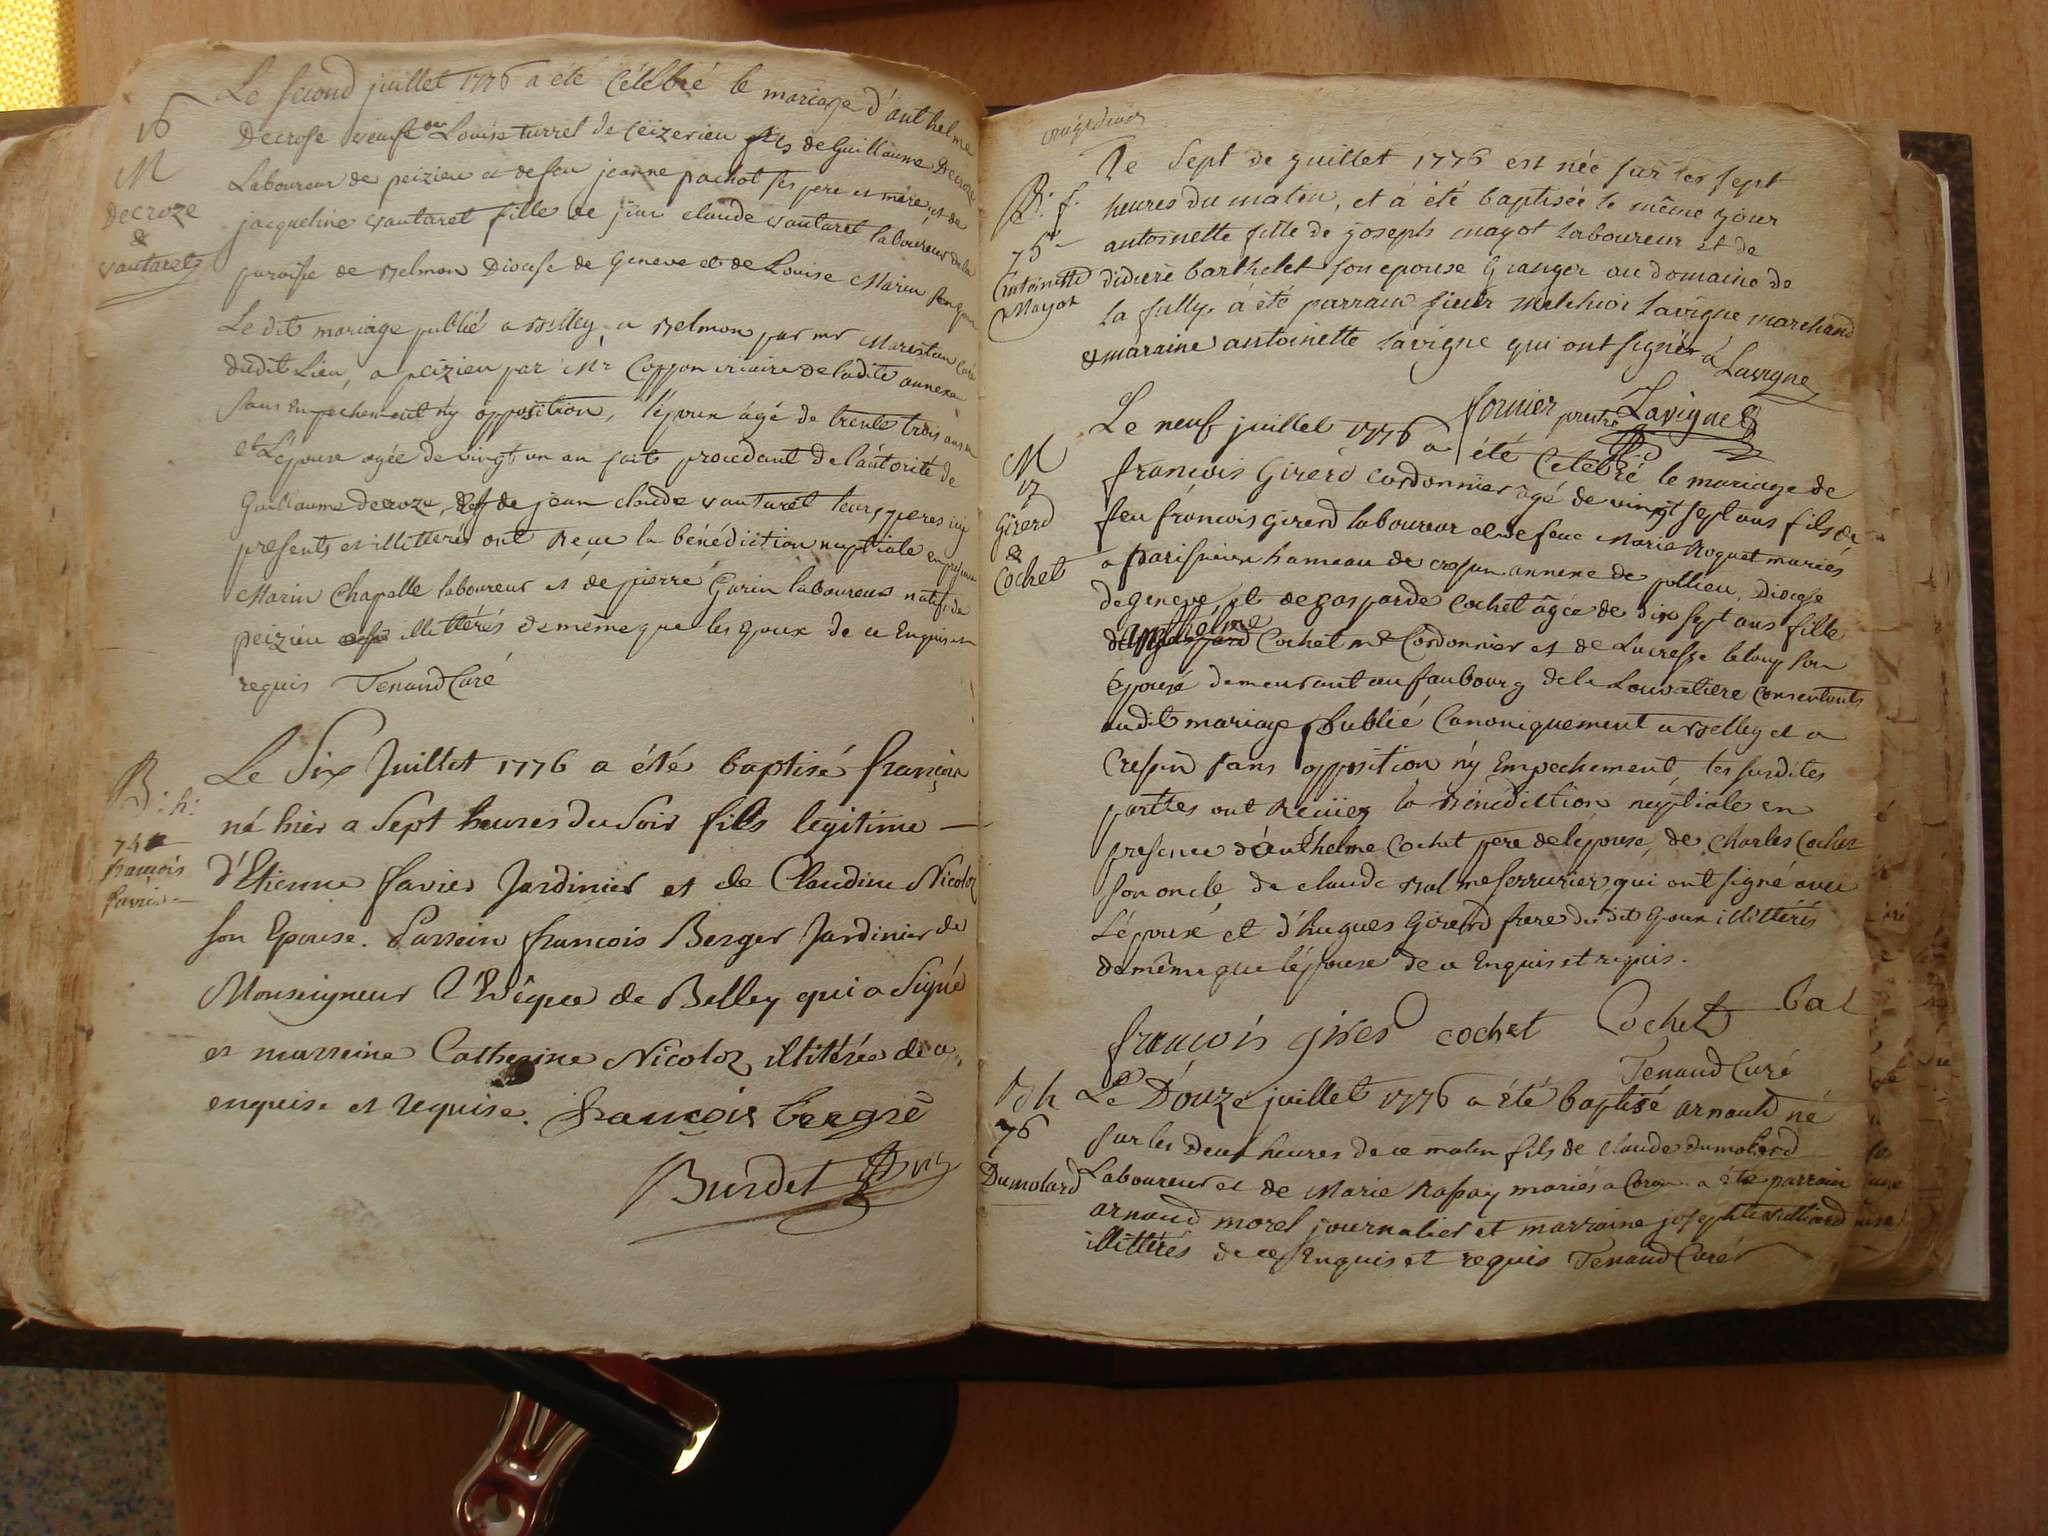 Le second juillet 1776 a été Célébré le mariage d'anthelme
16
Decrose veuf Louise turrel de Ceizerieu fils de Guillaume Decroze
M
Laboureur de peizieu et de feu jeanne pachot ses pere et mere, et de
Decroze
&
vautaret
jacqueline vautaret fille de jean claude vautaret laboureur de la
paroisse de Belmon Diocese de Geneve et de Louise Marin
Le dit mariage publié a Belley, a Belmon par mr Marestan Curé
dudit Lieu, a peizieu par Mr Coppon vicaire de ladite annexe
sans Empechement n'y opposition, l'époux âgé de trente trois ans
et L'epouse agée de vingt un an procedant de l'autorité de
Guillaume decroze, & de jean claude vautaret leurs peres icy
presents et illitterés ont Reçue la bénédiction nuptiale en presence
Marin Chapelle laboureur et de pierre Garin laboureur natifs de
peizieu illittérés de même que les Epoux de ce Enquis et
requis Tenand Curé
B: h:
74
françois
favier
Le Six Juillet 1776 a été baptisé françois
né hier a Sept heures du Soir fils legitime
d'Etienne favier Jardinier et de Claudine Nicoloz
son Epouse. Parrein françois Berger Jardinier de
Monseigneur L'Evêque de Belley qui a Signé
et marreine Catherine Nicoloz illitérée de ce
enquise et requise. françois bergrè
Burdet
B. f.
75e
Antoinette
Mayot
Le Sept de juillet 1776 est née sur les sept
heures du matin, et à été baptisée le même jour
antoinette fille de joseph mayot laboureur et de
didiere barthelet son epouse Granger au domaine de
la fully. à été parrain sieur melchior lavigne marchand
& maraine antoinette lavigne qui ont signés
a Lavigne
fornier prestre Lavigne
M
17
Girerd
&
Cochet
Le neuf juillet 1776 a été Célebré le mariage de
françois Girerd cordonnier agé de vingt sept ans fils de
feu françois girerd laboureur et de feue Marie Roguet mariés
a hameau de crepin annexe de pollieu, Diocese
de geneve, et de gasparde Cochet âgée de dix sept ans fille
d'anthelme Cochet me Cordonnier et de Lucresse letoup son
Epouse demeurant au faubourg de la Louvatiere consentants
audit mariage, Publié Canoniquement a Belley et a
Crepin sans opposition n'y Empechement, les susdites
parties ont Reçües la Bénédiction nuptiale en
presence d'anthelme Cochet pere de l'épouse, de Charles Cochet
son oncle, de claude Bal me serrurier, qui ont signé avec
L'époux et d'hugues Girerd frere du dit Epoux illittérés
de même que l'épouse de ce Enquis et requis.
françois girerd cochet Cochet bal
Tenand Curé
B h
76
Dumolard
Le Douze juillet 1776 a été baptisé arnauld né
sur les Deux heures de ce matin fils de claude dumolard
Laboureur et de Marie Rassay mariés a Coron a été parrain
arnaud morel journalier et marraine josephte Billiard
illittérés de ce Enquis et requis Tenand Curé